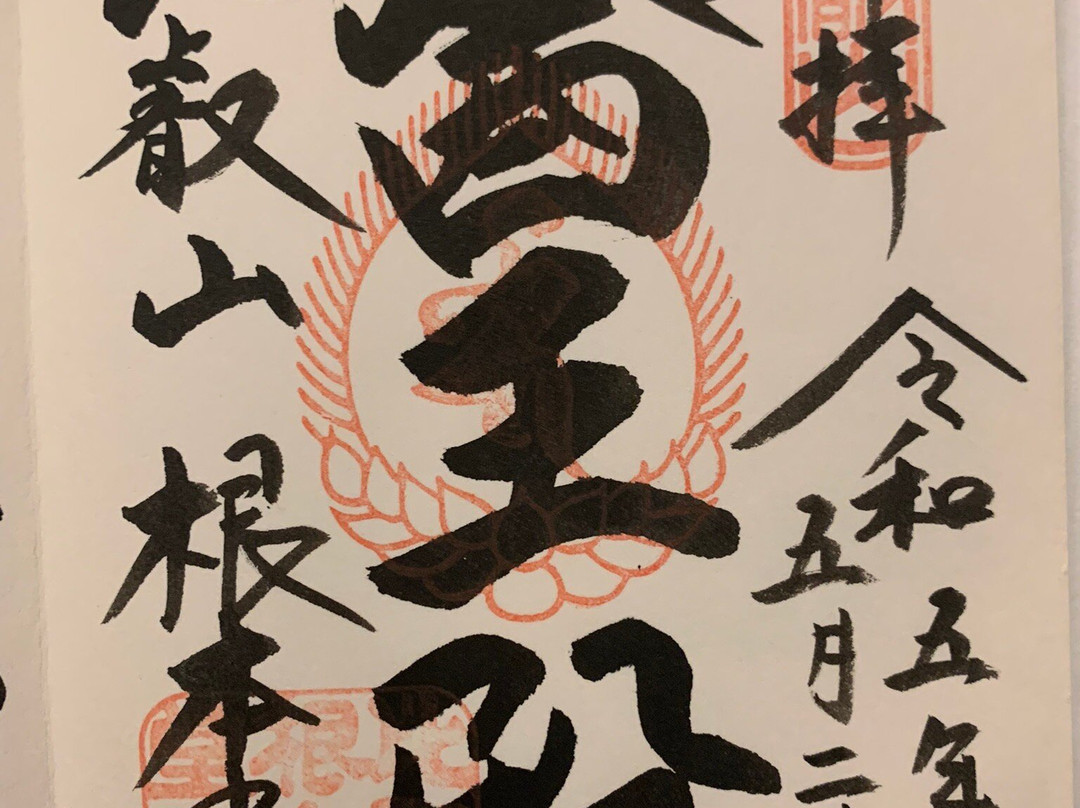 拝
令和五年
五月二
醫王殿
叡山 根本